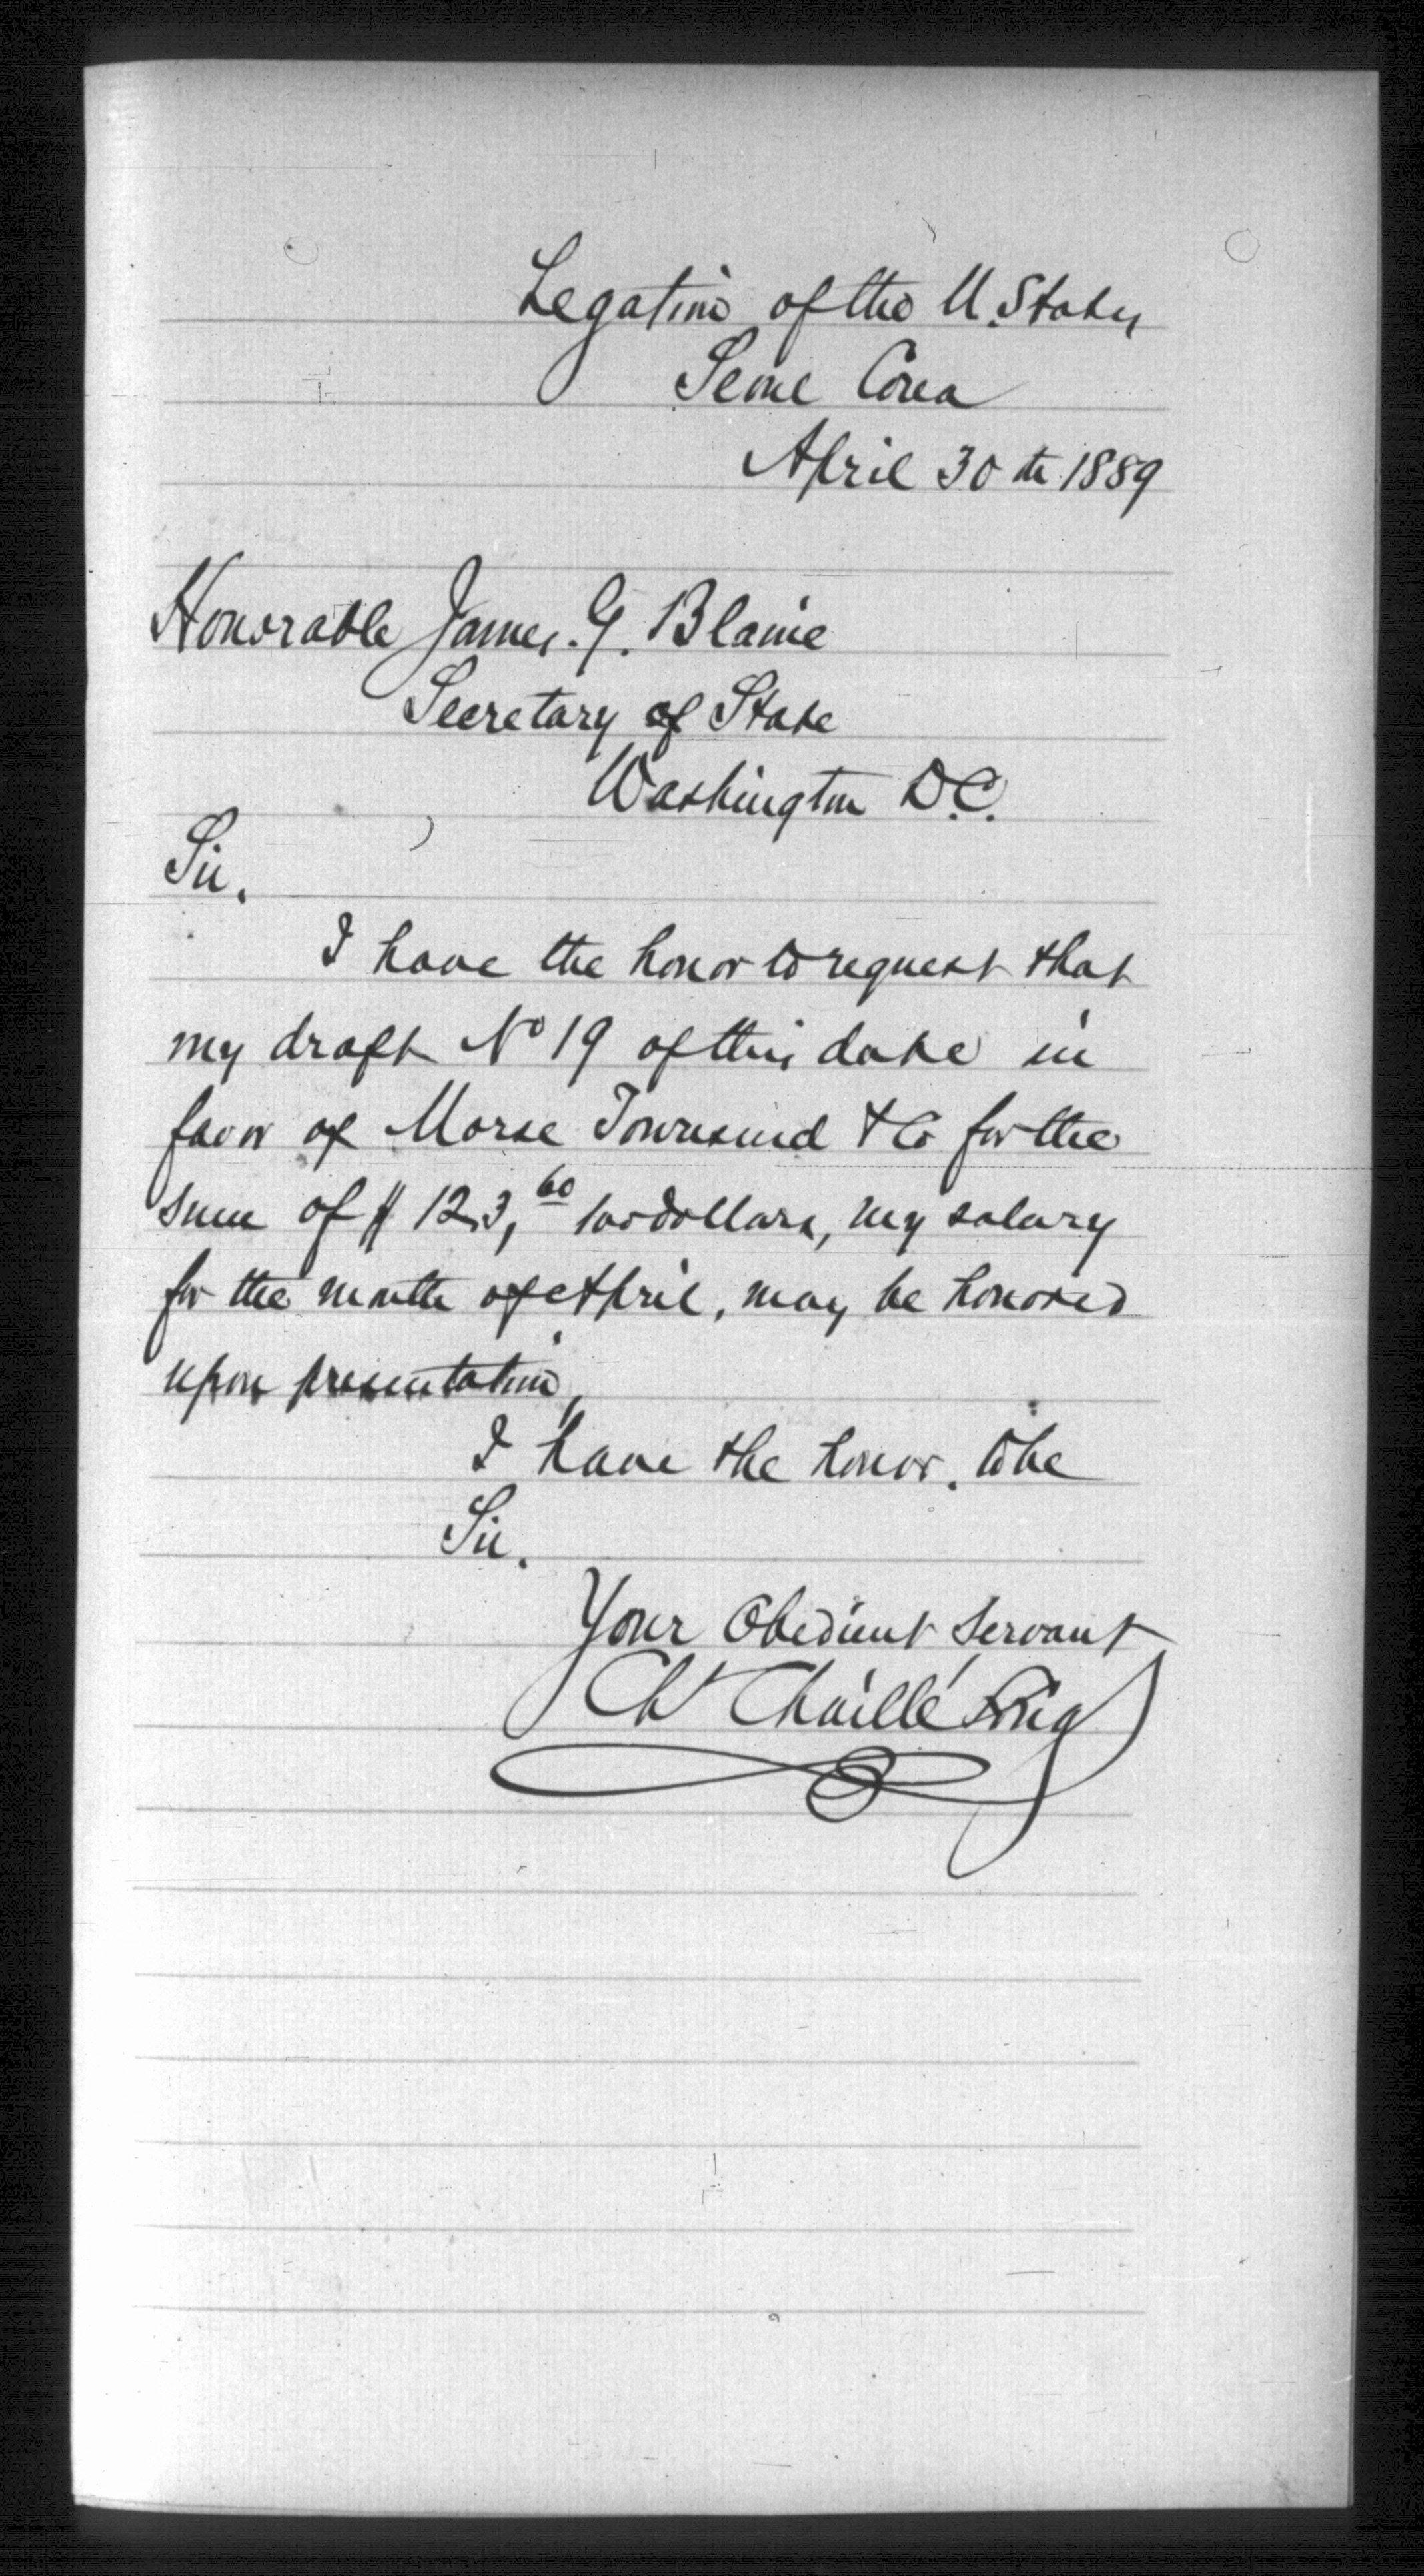 Legation of the U. States
Seoul Corea
April 30th 1889
Honorable James. G. Blaine
Secretary of State
Washington D.C.
Sir.
I have the honor to request that
my draft No 19 of this date in
favor of Morse Townsend & Co for the
sum of $ 123, 60/100 dollars, my salary
for the month of April, may be honored
upon presentation,
I have the honor, to be
Sir.
Your Obedient Servant
Ch Chaillé Long